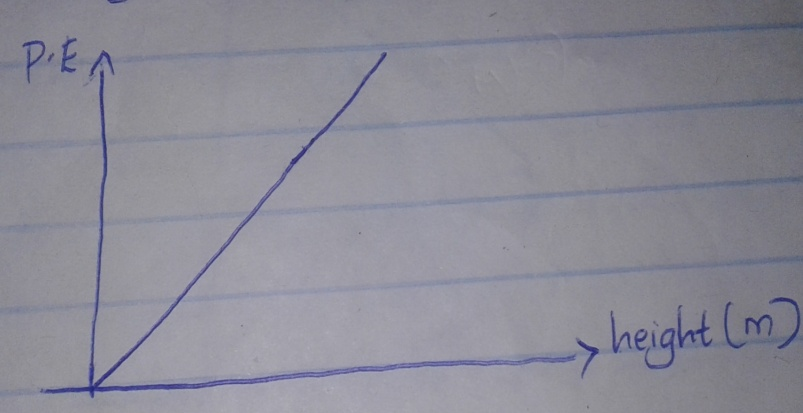 P.E
height (m)